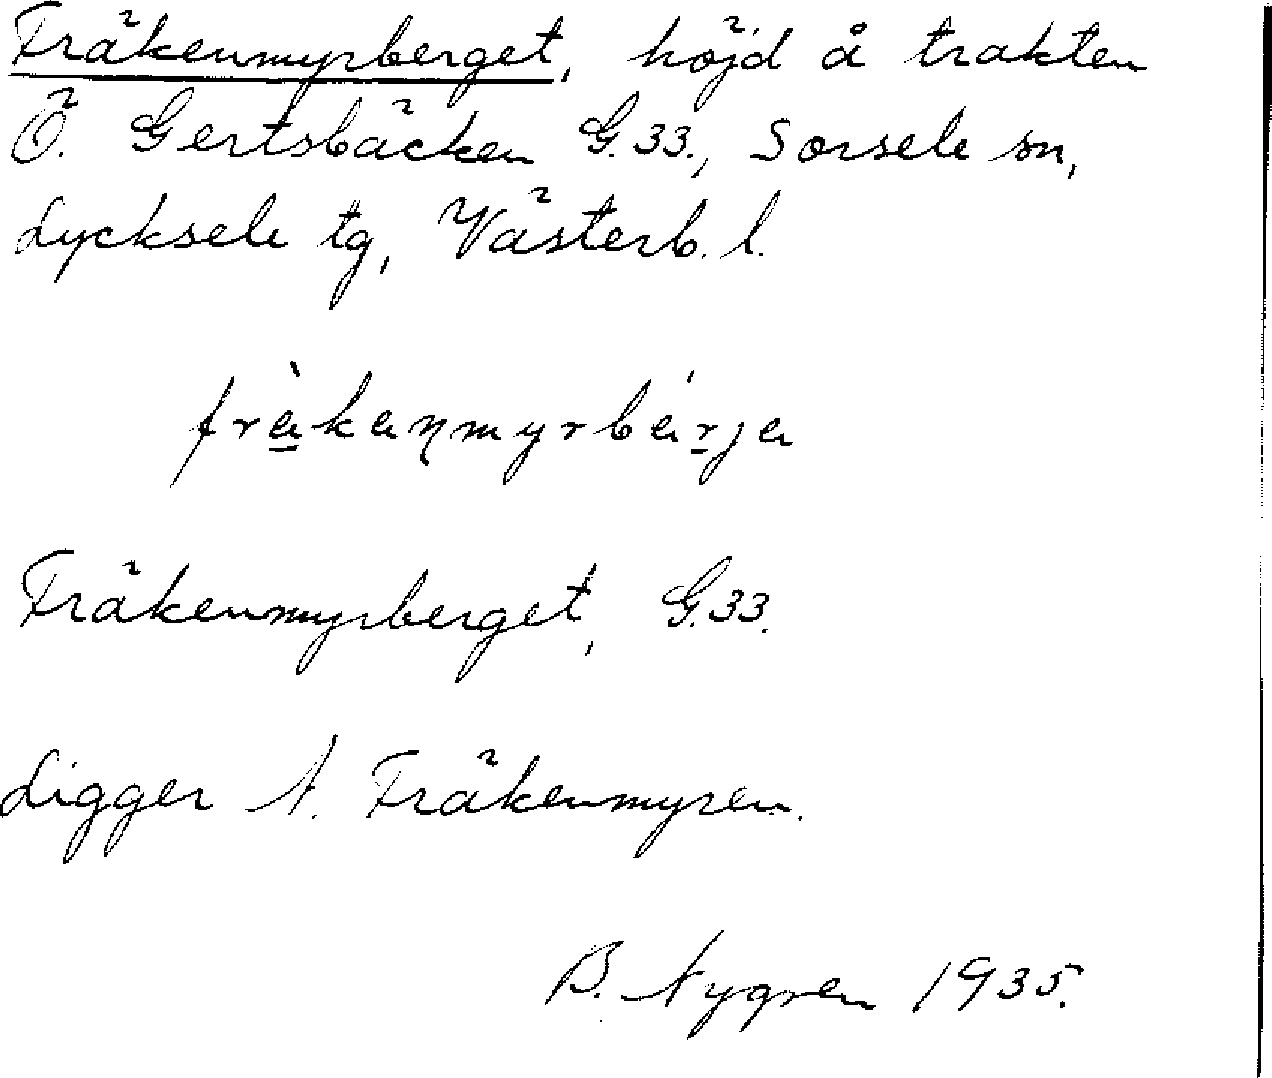 Fräkenmyrberget, höjd å trakten
Ö. Gertsbäcken G.33., Sorsele sn,
Lycksele tg, Västerb. l.
Fräkenmyrberget, G.33.
Ligger N. Fräkenmyren.
B. Nygren 1935.